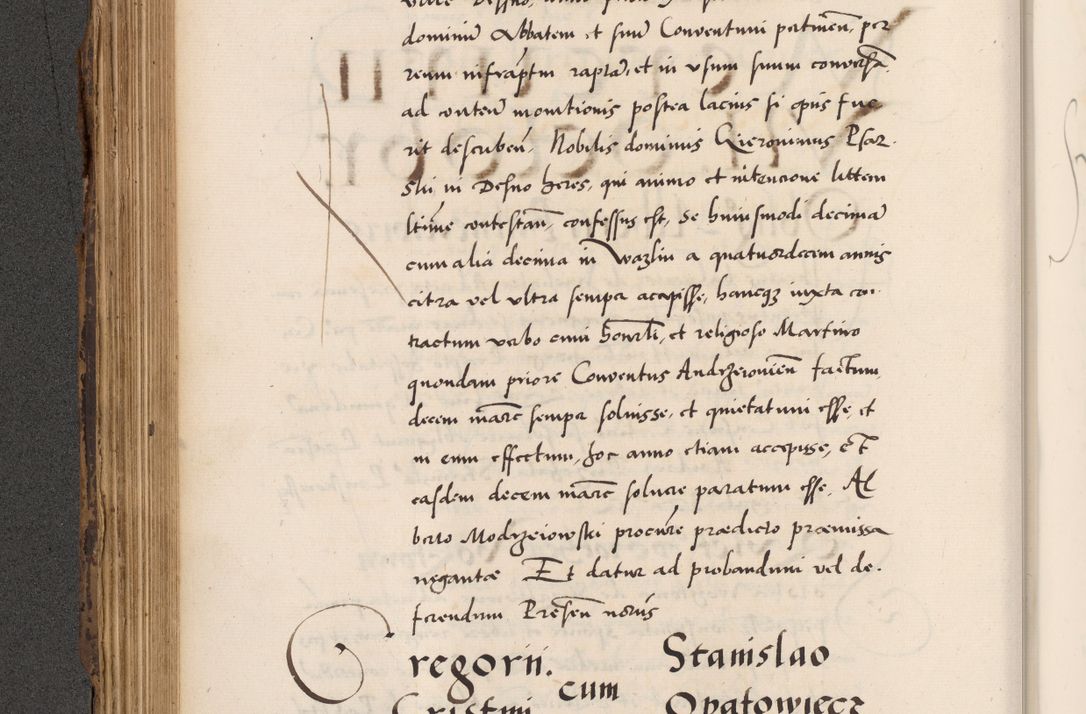 dominũ Abbatem et suũ Conventum pertineñ, per
reum infrãptm raptã, et in vsum suum conversã
ad conteñ monitionis postea lacius si opus fue
rit describeñ. Nobilis dominus Hieronimus Psar
ski in Desno heres, qui animo et intencione littem
ltime contestañ, confessus est, se huiusmodi decimã
cum alia decima in Wazlin a quatuordecem annis
citra vel vltra semper acæpisse, hancqz iuxta con
tractum verbo cum honrli, et religioso Martino
quondam priore Conventus Andrzeiouieñ factum,
decem marc semper soluisse, et quietatum esse, et
in eum effectum, hoc anno etiam accepisse, et
easdem decem marc soluere paratum esse. Al
berto Modrzeiowski procure prædicto præmissa
negante Et datur ad probandum vel de-
ferendum Preseñ noris
Gregorii. Stanislao
cum
Cristini Opatowiecz